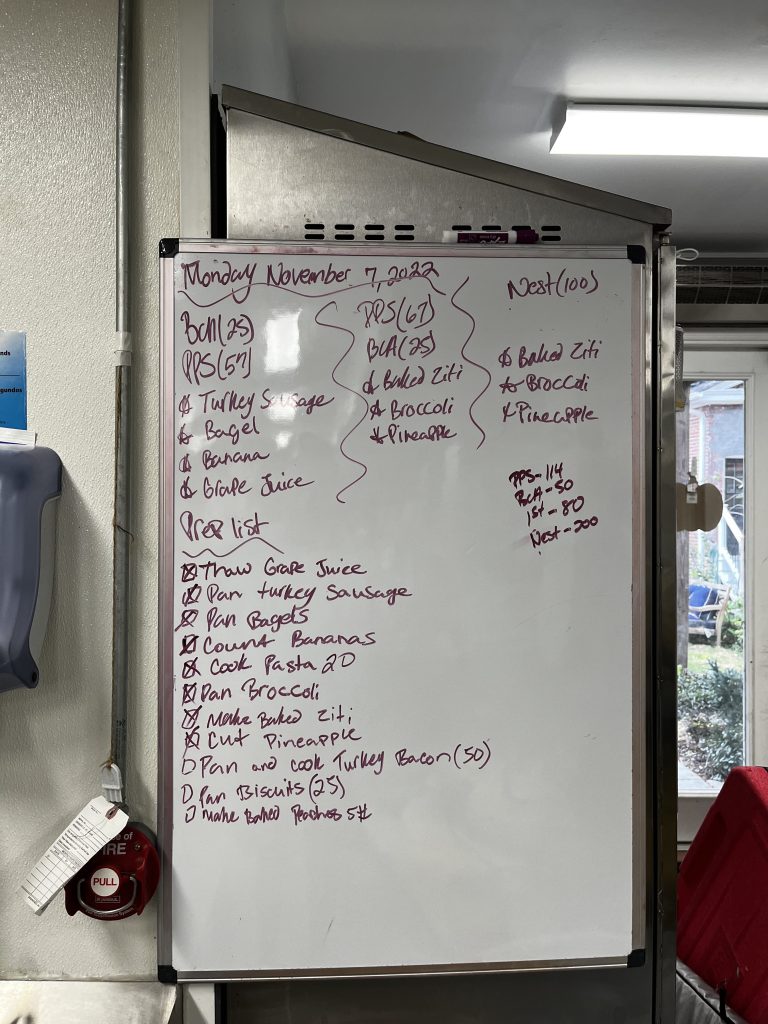 Monday November 7, 2022
BCA(25)
PPS(57)
Turkey Sausage
Bagel
Banana
Grape Juice
PPS(67)
BCA(25)
Baked Ziti
Broccoli
Pineapple
Nest(100)
Baked Ziti
Broccoli
Pineapple
PPS-114
BCA-50
1st-80
Nest-200
Prep list
Thaw Grape Juice
Pan turkey Sausage
Pan Bagels
Count Bananas
Cook Pasta 20
Pan Broccoli
Make Baked Ziti
Cut Pineapple
Pan and cook Turkey Bacon(50)
Pan Biscuits(25)
Make Baked Peaches 5#
PULL